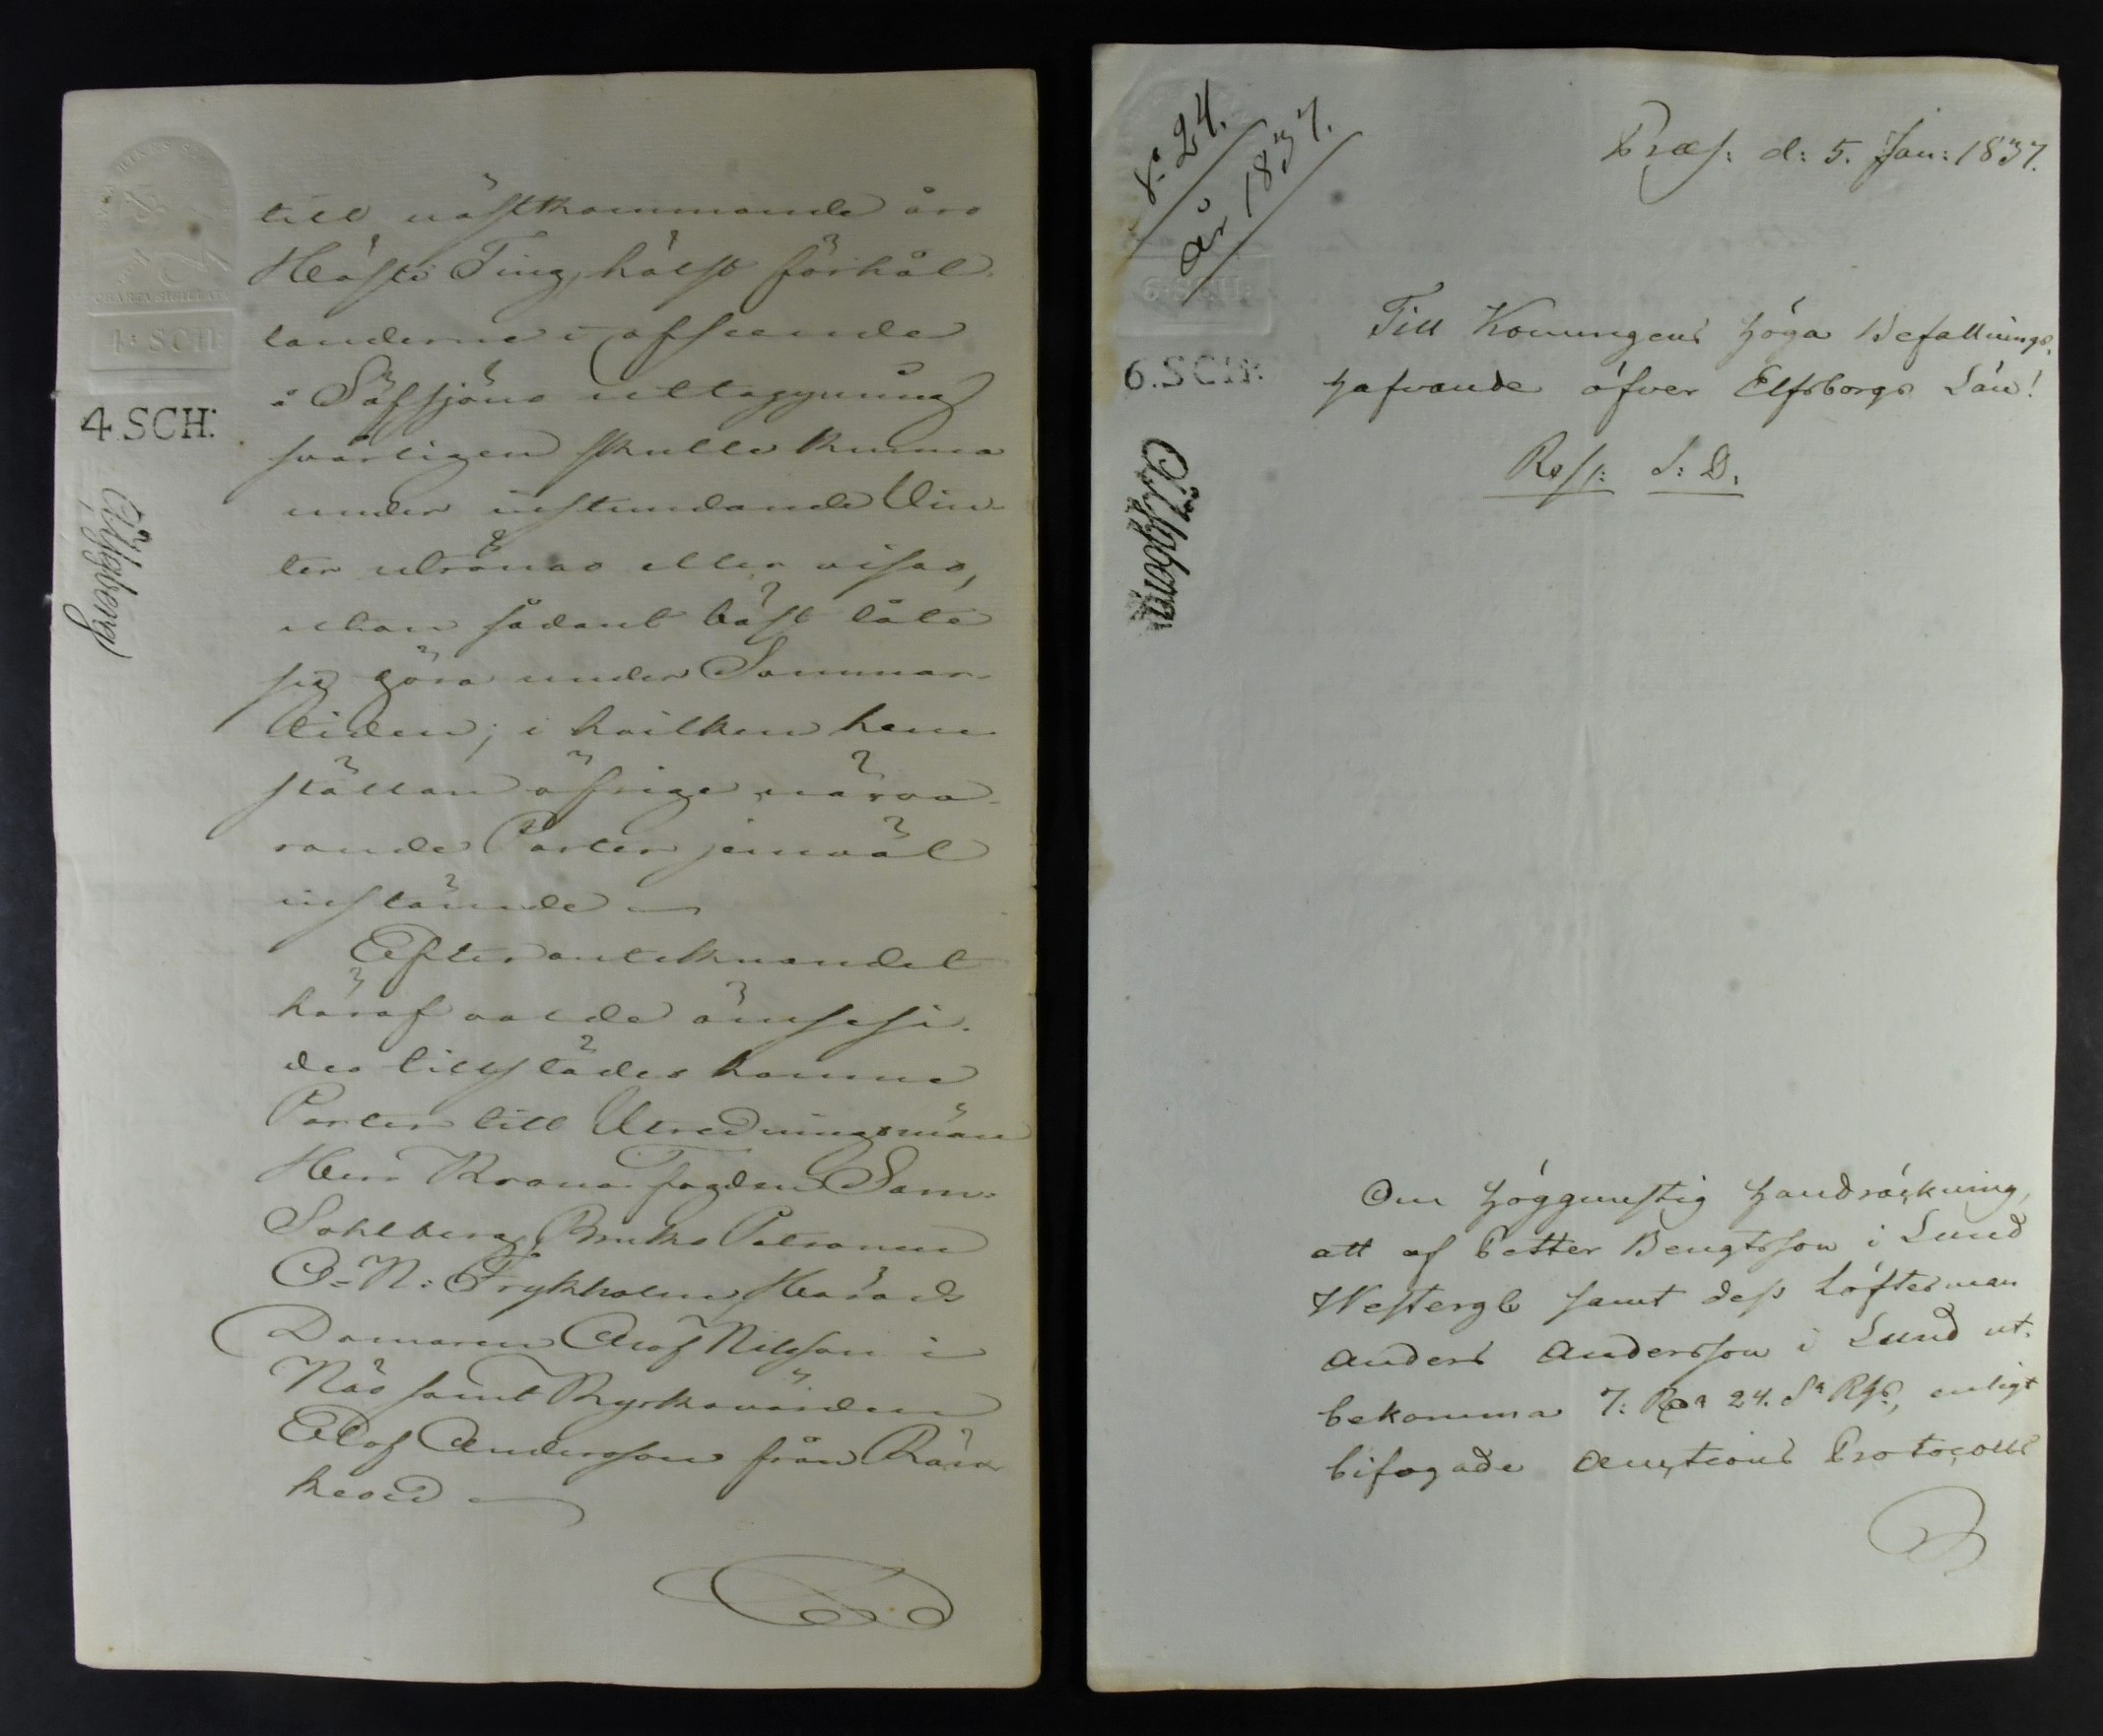 CHARTA SIGILLATA
4: SCH
4 SCH:
till nästkommande års
Höste Ting, hälst förhål-
landerne i afseende
å Säfsjöns uttappning
svårligen skulle kunna
under instundande Vin-
ter utrönas eller visas,
utan sådant bäst låte
sig göra under Sommar-
tiden; i hvilken hem-
ställan öfrige närva-
rande Parter jemväl
instämde
Efter antecknandet
häraf valde ömsesi-
des tillstädes komne
Parter till Utredningsmän
Herr Krono-fogden Sam:
Sohlberg, Bruks Patronen
C: N: Frykholm, Härads
Domaren Olof Nilsson i
Näs samt Kyrkovärden
Elof Andersson från
№ 24.
år 1837.
6: SCH:
6. SCH:
Præs: d: 5. Jan: 1837.
Till Konungens Höga Befallnings,
Hafvande öfver Elfsborgs Län!
Res: S: D.
Om Höggunstig Handräckning,
att af Petter Bengtsson i Lund
Westergl samt dess Löftesman
Anders Andersson i Lund ut-
bekomma 7: Rdr 24. Sk Rgs, enligt
bifogade Auctions Protocolls